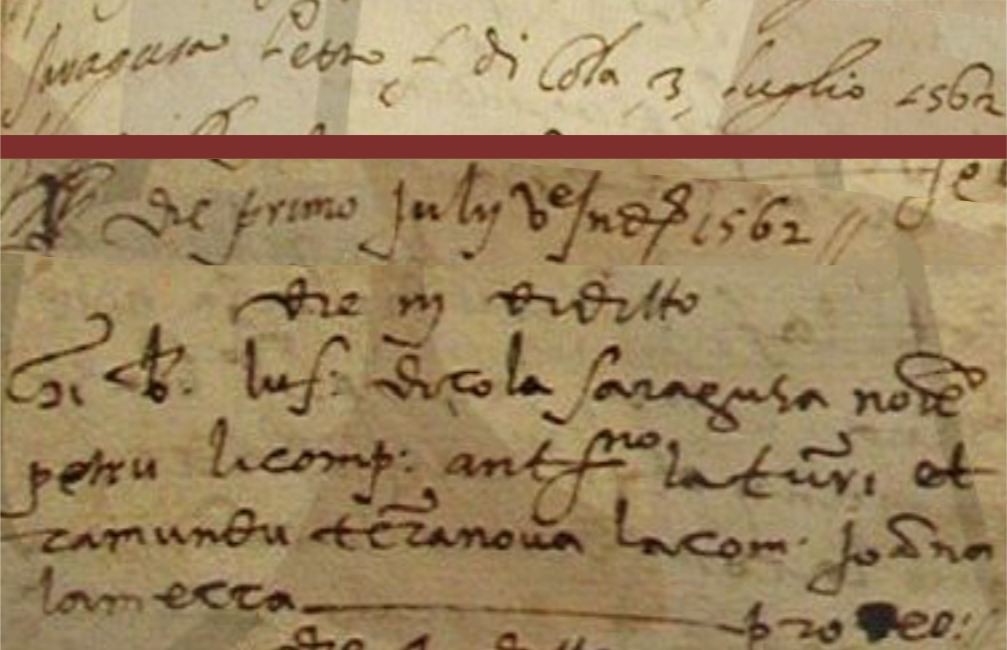 Saragusa Petro f di Cola 3 luglio 1562
Die primo Julij Ve Ind 1562 //
die iij di ditto
b. lu f: di cola saragusa no
petru li comp: ant no la turri et
ramundu terranova la com. Joanna
lamecca pro deo: